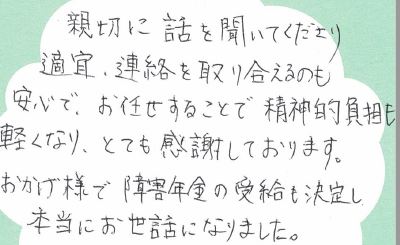 親切に話を聞いてくださり
適宜、連絡を取り合えるのも
安心で、お任せすることで精神的負担も
軽くなり、とても感謝しております。
おかげ様で障害年金の受給も決定し
本当にお世話になりました。